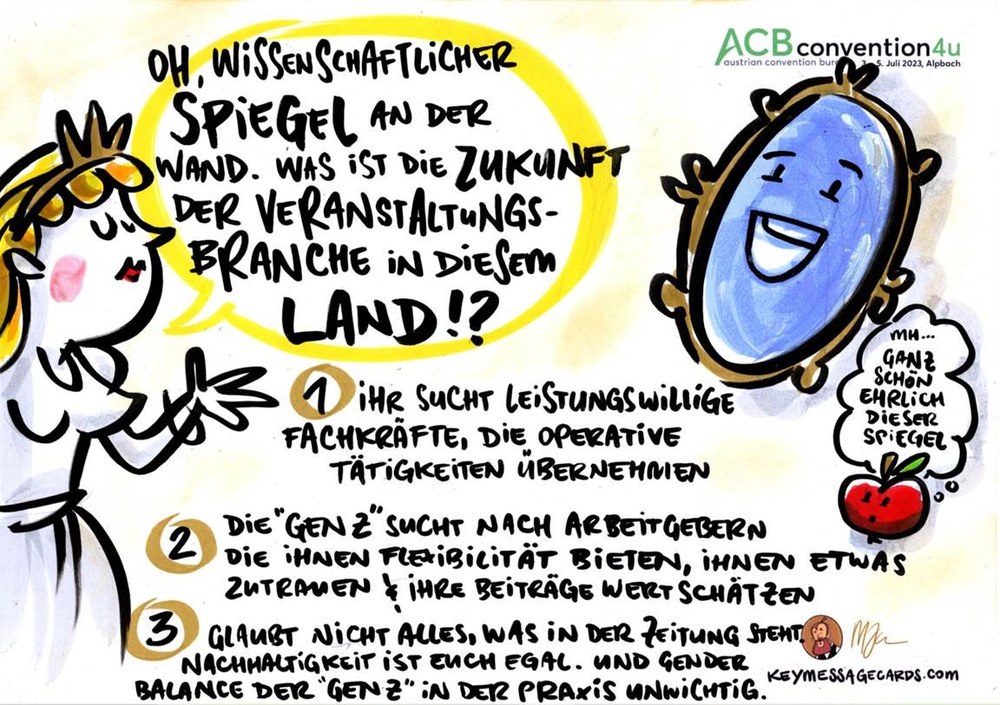 OH, WISSENSCHAFTLICHER
SPIEGEL AN DER
WAND. WAS IST DIE ZUKUNFT
DER VERANSTALTUNGS-
BRANCHE IN DIESEM
LAND!?
ACB convention4u
austrian convention bur
3. - 5. Juli 2023, Alpbach
MH...
GANZ
SCHÖN
EHRLICH
DIESER
SPIEGEL
1 IHR SUCHT LEISTUNGSWILLIGE
FACHKRÄFTE, DIE OPERATIVE
TÄTIGKEITEN ÜBERNEHMEN
2 DIE "GEN Z" SUCHT NACH ARBEITGEBERN
DIE IHNEN FLEXIBILITÄT BIETEN, IHNEN ETWAS
ZUTRAUEN & IHRE BEITRÄGE WERTSCHÄTZEN
3 GLAUBT NICHT ALLES, WAS IN DER ZEITUNG STEHT,
NACHHALTIGKEIT IST EUCH EGAL. UND GENDER
BALANCE DER "GEN Z" IN DER PRAXIS UNWICHTIG.
KEYMESSAGECARDS.COM